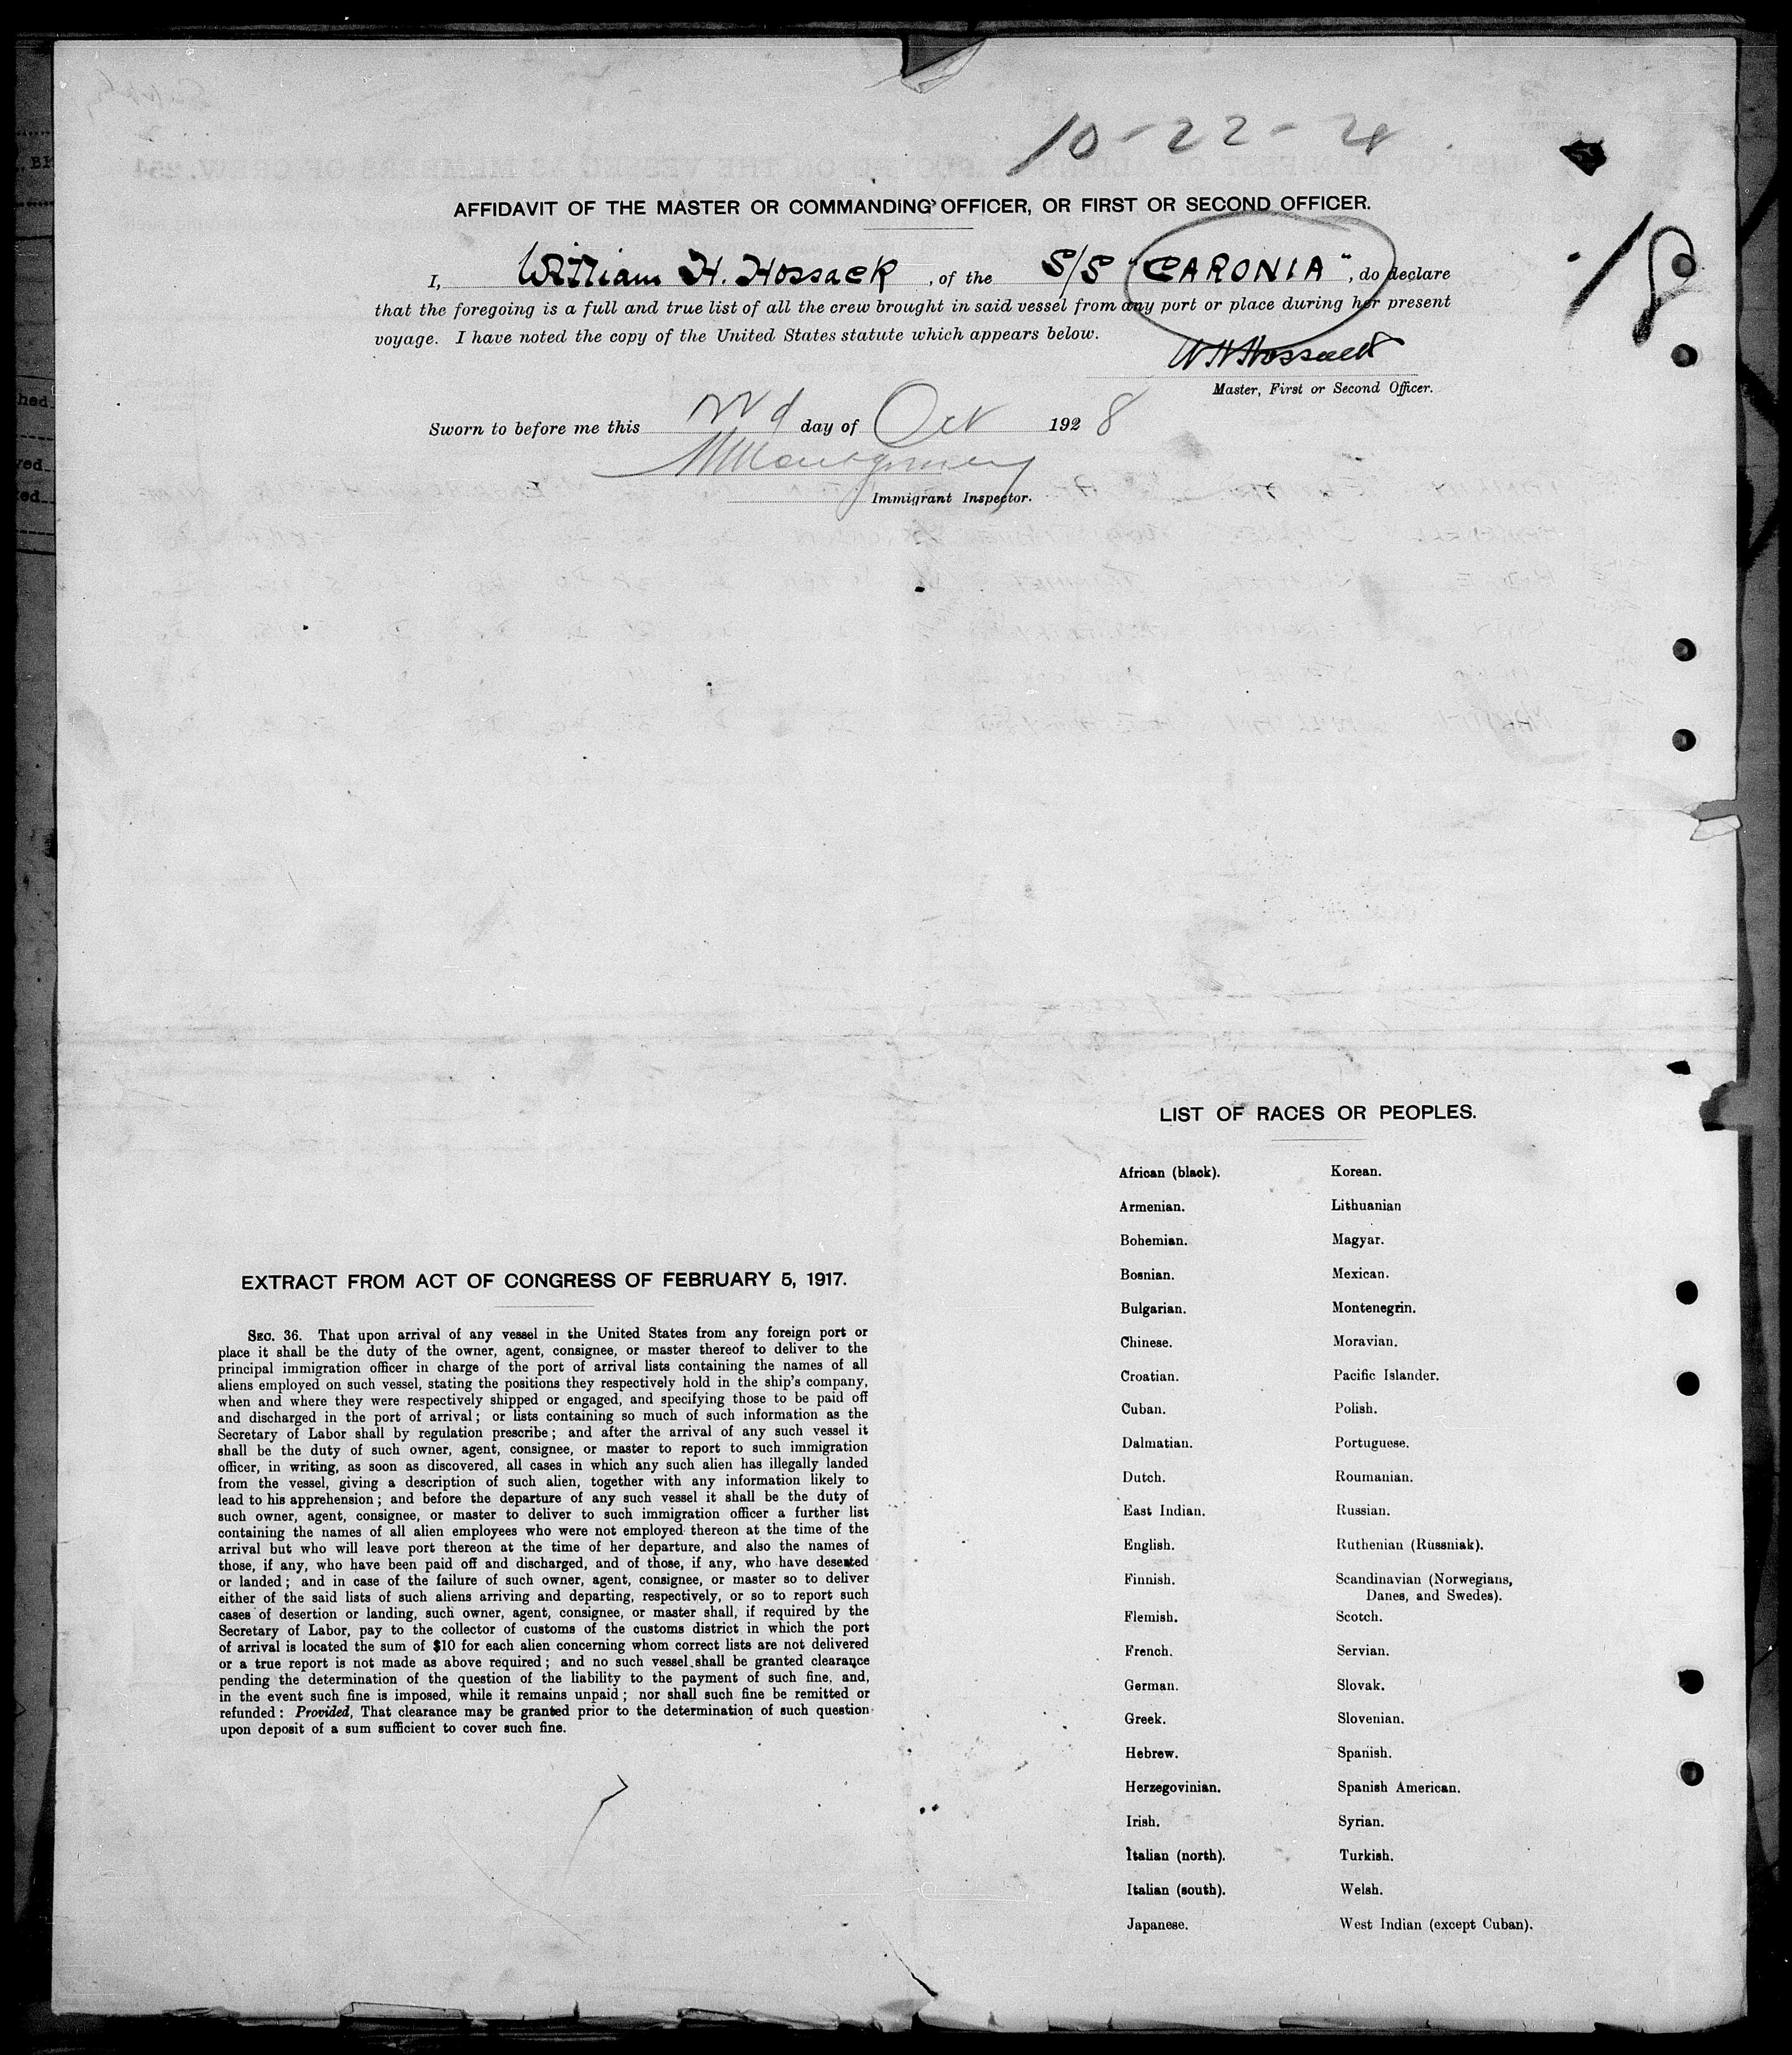 10-22-28
AFFIDAVIT OF THE MASTER OR COMMANDING OFFICER, OR FIRST OR SECOND OFFICER.
18
I, William H. Hossack, of the S/S "CARONIA", do declare
that the foregoing is a full and true list of all the crew brought in said vessel from any port or place during her present
voyage. I have noted the copy of the United States statute which appears below.
W H Hossack
Master, First or Second Officer.
Sworn to before me this 22d day of Oct 1928
Montgomery
Immigrant Inspector.
EXTRACT FROM ACT OF CONGRESS OF FEBRUARY 5, 1917.
SEC. 36. That upon arrival of any vessel in the United States from any foreign port or
place it shall be the duty of the owner, agent, consignee, or master thereof to deliver to the
principal immigration officer in charge of the port of arrival lists containing the names of all
aliens employed on such vessel, stating the positions they respectively hold in the ship's company,
when and where they were respectively shipped or engaged, and specifying those to be paid off
and discharged in the port of arrival; or lists containing so much of such information as the
Secretary of Labor shall by regulation prescribe; and after the arrival of any such vessel it
shall be the duty of such owner, agent, consignee, or master to report to such immigration
officer, in writing, as soon as discovered, all cases in which any such alien has illegally landed
from the vessel, giving a description of such alien, together with any information likely to
lead to his apprehension; and before the departure of any such vessel it shall be the duty of
such owner, agent, consignee, or master to deliver to such immigration officer a further list
containing the names of all alien employees who were not employed thereon at the time of the
arrival but who will leave port thereon at the time of her departure, and also the names of
those, if any, who have been paid off and discharged, and of those, if any, who have deserted
or landed; and in case of the failure of such owner, agent, consignee, or master so to deliver
either of the said lists of such aliens arriving and departing, respectively, or so to report such
cases of desertion or landing, such owner, agent, consignee, or master shall, if required by the
Secretary of Labor, pay to the collector of customs of the customs district in which the port
of arrival is located the sum of $10 for each alien concerning whom correct lists are not delivered
or a true report is not made as above required; and no such vessel shall be granted clearance
pending the determination of the question of the liability to the payment of such fine, and,
in the event such fine is imposed, while it remains unpaid; nor shall such fine be remitted or
refunded: Provided, That clearance may be granted prior to the determination of such question
upon deposit of a sum sufficient to cover such fine.
LIST OF RACES OR PEOPLES.
African (black).
Armenian.
Bohemian.
Bosnian.
Bulgarian.
Chinese.
Croatian.
Cuban.
Dalmatian.
Dutch.
East Indian.
English.
Finnish.
Flemish.
French.
German.
Greek.
Hebrew.
Herzegovinian.
Irish.
Italian (north).
Italian (south).
Japanese.
Korean.
Lithuanian
Magyar.
Mexican.
Montenegrin.
Moravian.
Pacific Islander.
Polish.
Portuguese.
Roumanian.
Russian.
Ruthenian (Russniak).
Scandinavian (Norwegians,
Danes, and Swedes).
Scotch.
Servian.
Slovak.
Slovenian.
Spanish.
Spanish American.
Syrian.
Turkish.
Welsh.
West Indian (except Cuban).